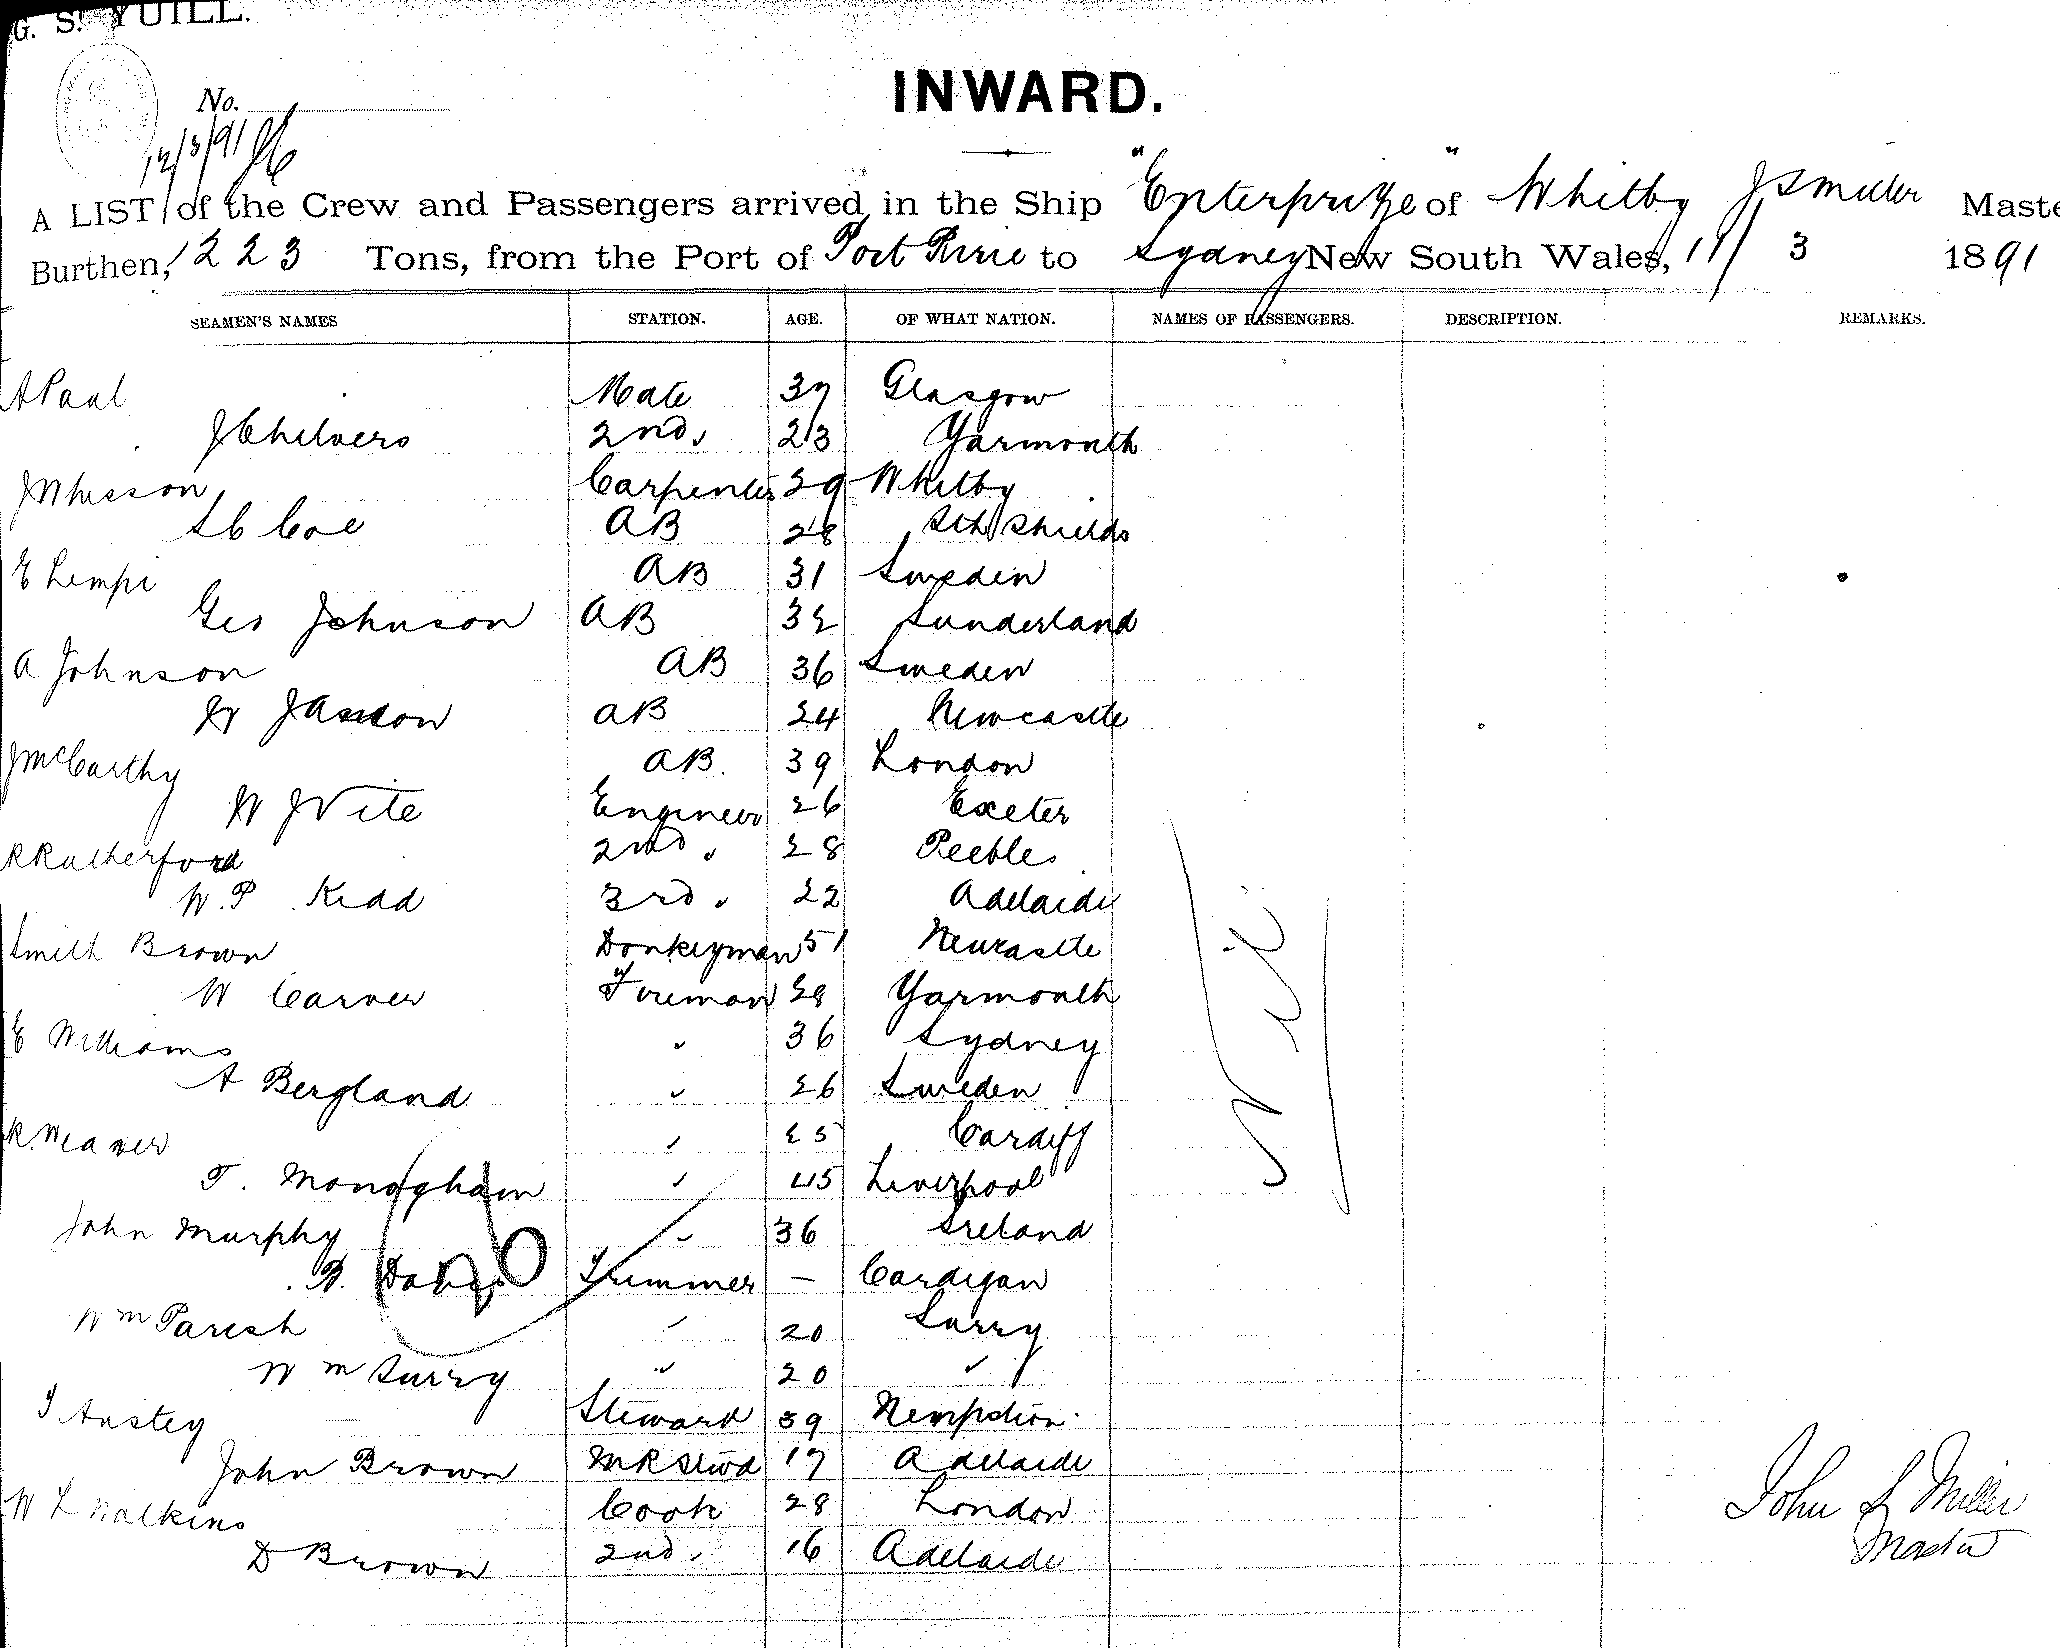 G. S. YUILL.
INWARD.
No.
12/3/91
A LIST of the Crew and Passengers arrived in the Ship "Enterprize" of Whitby J S Miller Maste
Burthen, 1223 Tons, from the Port of Port Pirie to Sydney New South Wales, 11/3 1891
SEAMEN'S NAMES STATION. AGE. OF WHAT NATION. NAMES OF PASSENGERS. DESCRIPTION. REMARKS.
A Paul Mate 37 Glasgow
J Chilvers 2nd " 23 Yarmouth
J Whisson Carpenter 29 Whitby
S C Coe AB 28 Sth Shields
E Lempi AB 31 Sweden
Geo Johnson AB 32 Sunderland
A Johnson AB 36 Sweden
W AB 24 Newcastle
J McCarthy AB. 39 London
W J Vile Engineer 26 Exeter
R Rutherford 2nd " 28 Peebles
W. P. Kidd 3rd " 22 Adelaide
Smith Brown Donkeyman 51 Newcastle
W Carver Fireman 28 Yarmouth
E Williams " 36 Sydney
A Bergland " 26 Sweden
R. Weaver " 25 Cardiff
T. Monoghain " 45 Liverpool
John Murphy " 36 Ireland
Trimmer — Cardigan
Wm Parish " 20 Surry
Wm Surry " 20 "
T Anstey Steward 39
John Brown M R Stwd 17 Adelaide
W L Walkins Cook 28 London
D Brown 2nd " 16 Adelaide
Nil
John S Miller
Master